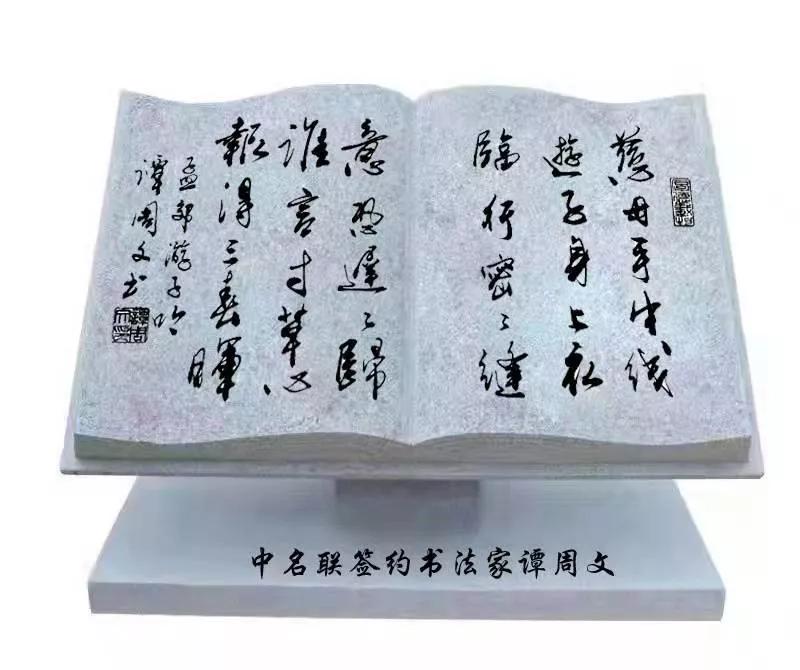 慈母手中线
遊子身上衣
臨行密〻缝
意恐遲〻歸
誰言寸草心
報得三春暉
孟郊游子吟
谭周文书
中名联签约书法家谭周文